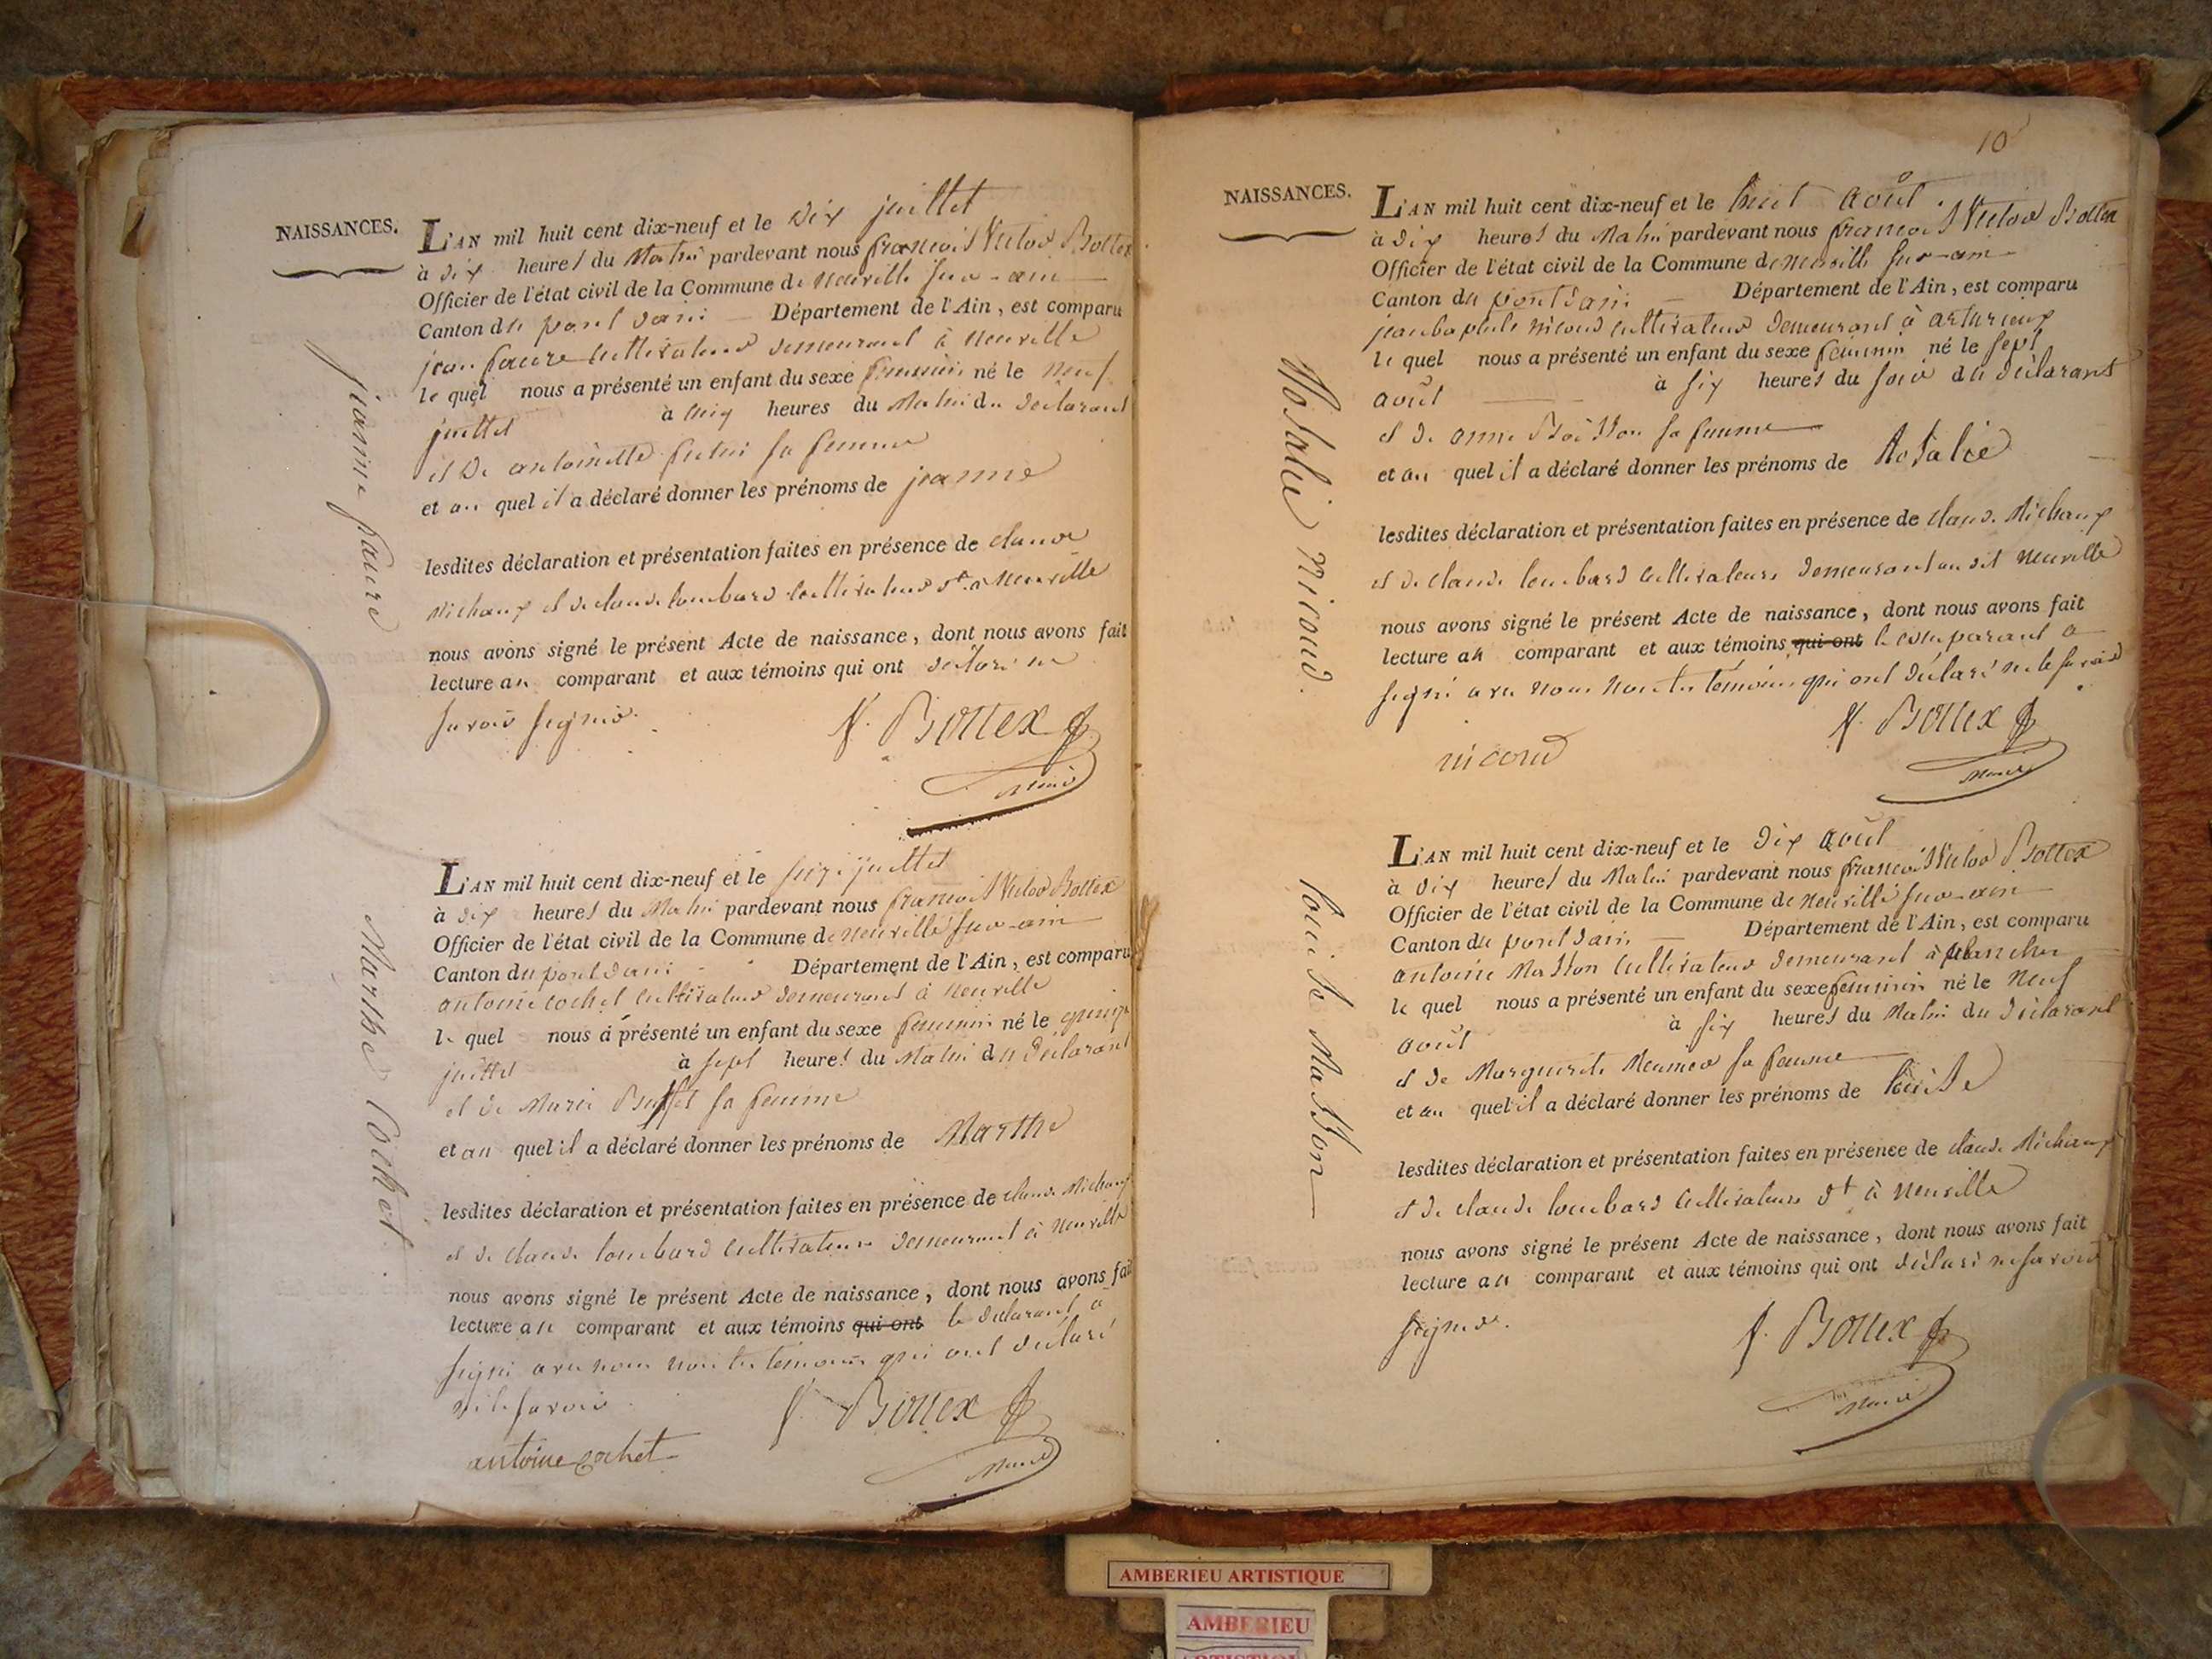 NAISSANCES.
L'AN mil huit cent dix-neuf et le dix juillet
à dix heures du Matin pardevant nous françois Victor Bottex
Officier de l'état civil de la Commune de neuville sur-ain
Canton du pont dain Département de l'Ain, est comparu
jean faure cultivateur demeurant à neuville
le quel nous a présenté un enfant du sexe feminin né le neuf
juillet à cinq heures du Matin du declarant
et de antoinette sa femme
et au quel il a déclaré donner les prénoms de jeanne
lesdites déclaration et présentation faites en présence de claude
Michaux et de claude lombard cultivateurs dt à Neuville
nous avons signé le présent Acte de naissance, dont nous avons fait
lecture au comparant et aux témoins qui ont déclaré ne
savoir signer.
V. Bottex
Maire
jeanne faure
L'AN mil huit cent dix-neuf et le seize juillet
à dix heures du Matin pardevant nous françois Victor Bottex
Officier de l'état civil de la Commune de neuville sur-ain
Canton du pont dain Département de l'Ain, est comparu
antoine cochet cultivateur demeurant à neuville
le quel nous a présenté un enfant du sexe feminin né le quinze
juillet à sept heures du Matin du declarant
et de Marie Buffet sa femme
et au quel il a déclaré donner les prénoms de Marthe
lesdites déclaration et présentation faites en présence de claude Michaux
et de claude lombard cultivateurs demeurant à neuville
nous avons signé le présent Acte de naissance, dont nous avons fait
lecture au comparant et aux témoins qui ont le declarant a
signé avec nous non les temoins qui ont declaré
ne le savoir.
V. Bottex
Maire
antoine cochet
Marthe Cochet.
10
NAISSANCES.
L'AN mil huit cent dix-neuf et le huit août
à dix heures du Matin pardevant nous françois Victor Bottex
Officier de l'état civil de la Commune de neuville sur-ain
Canton du pont dain Département de l'Ain, est comparu
jean baptiste nicoud cultivateur demeurant à
le quel nous a présenté un enfant du sexe feminin né le sept
août à six heures du soir du déclarant
et de anne sa femme
et au quel il a déclaré donner les prénoms de Rosalie
lesdites déclaration et présentation faites en présence de claude Michaux
et de claude lombard cultivateurs demeurant au dit neuville
nous avons signé le présent Acte de naissance, dont nous avons fait
lecture au comparant et aux témoins qui ont le comparant a
signé avec nous non les témoins qui ont déclaré ne le savoir
V. Bottex
Maire
nicoud
Rosalie nicoud.
L'AN mil huit cent dix-neuf et le dix août
à dix heures du Matin pardevant nous françois Victor Bottex
Officier de l'état civil de la Commune de neuville sur-ain
Canton du pont dain Département de l'Ain, est comparu
antoine Masson cultivateur demeurant à planches
le quel nous a présenté un enfant du sexe feminin né le neuf
août à six heures du Matin du déclarant
et de Marguerite sa femme
et au quel il a déclaré donner les prénoms de louise
lesdites déclaration et présentation faites en présence de claude Michaux
et de claude lombard cultivateurs dt à neuville
nous avons signé le présent Acte de naissance, dont nous avons fait
lecture au comparant et aux témoins qui ont déclaré ne savoir
signer.
V. Bottex
Maire
louise Masson
AMBERIEU ARTISTIQUE
AMBERIEU
ARTISTIQUE